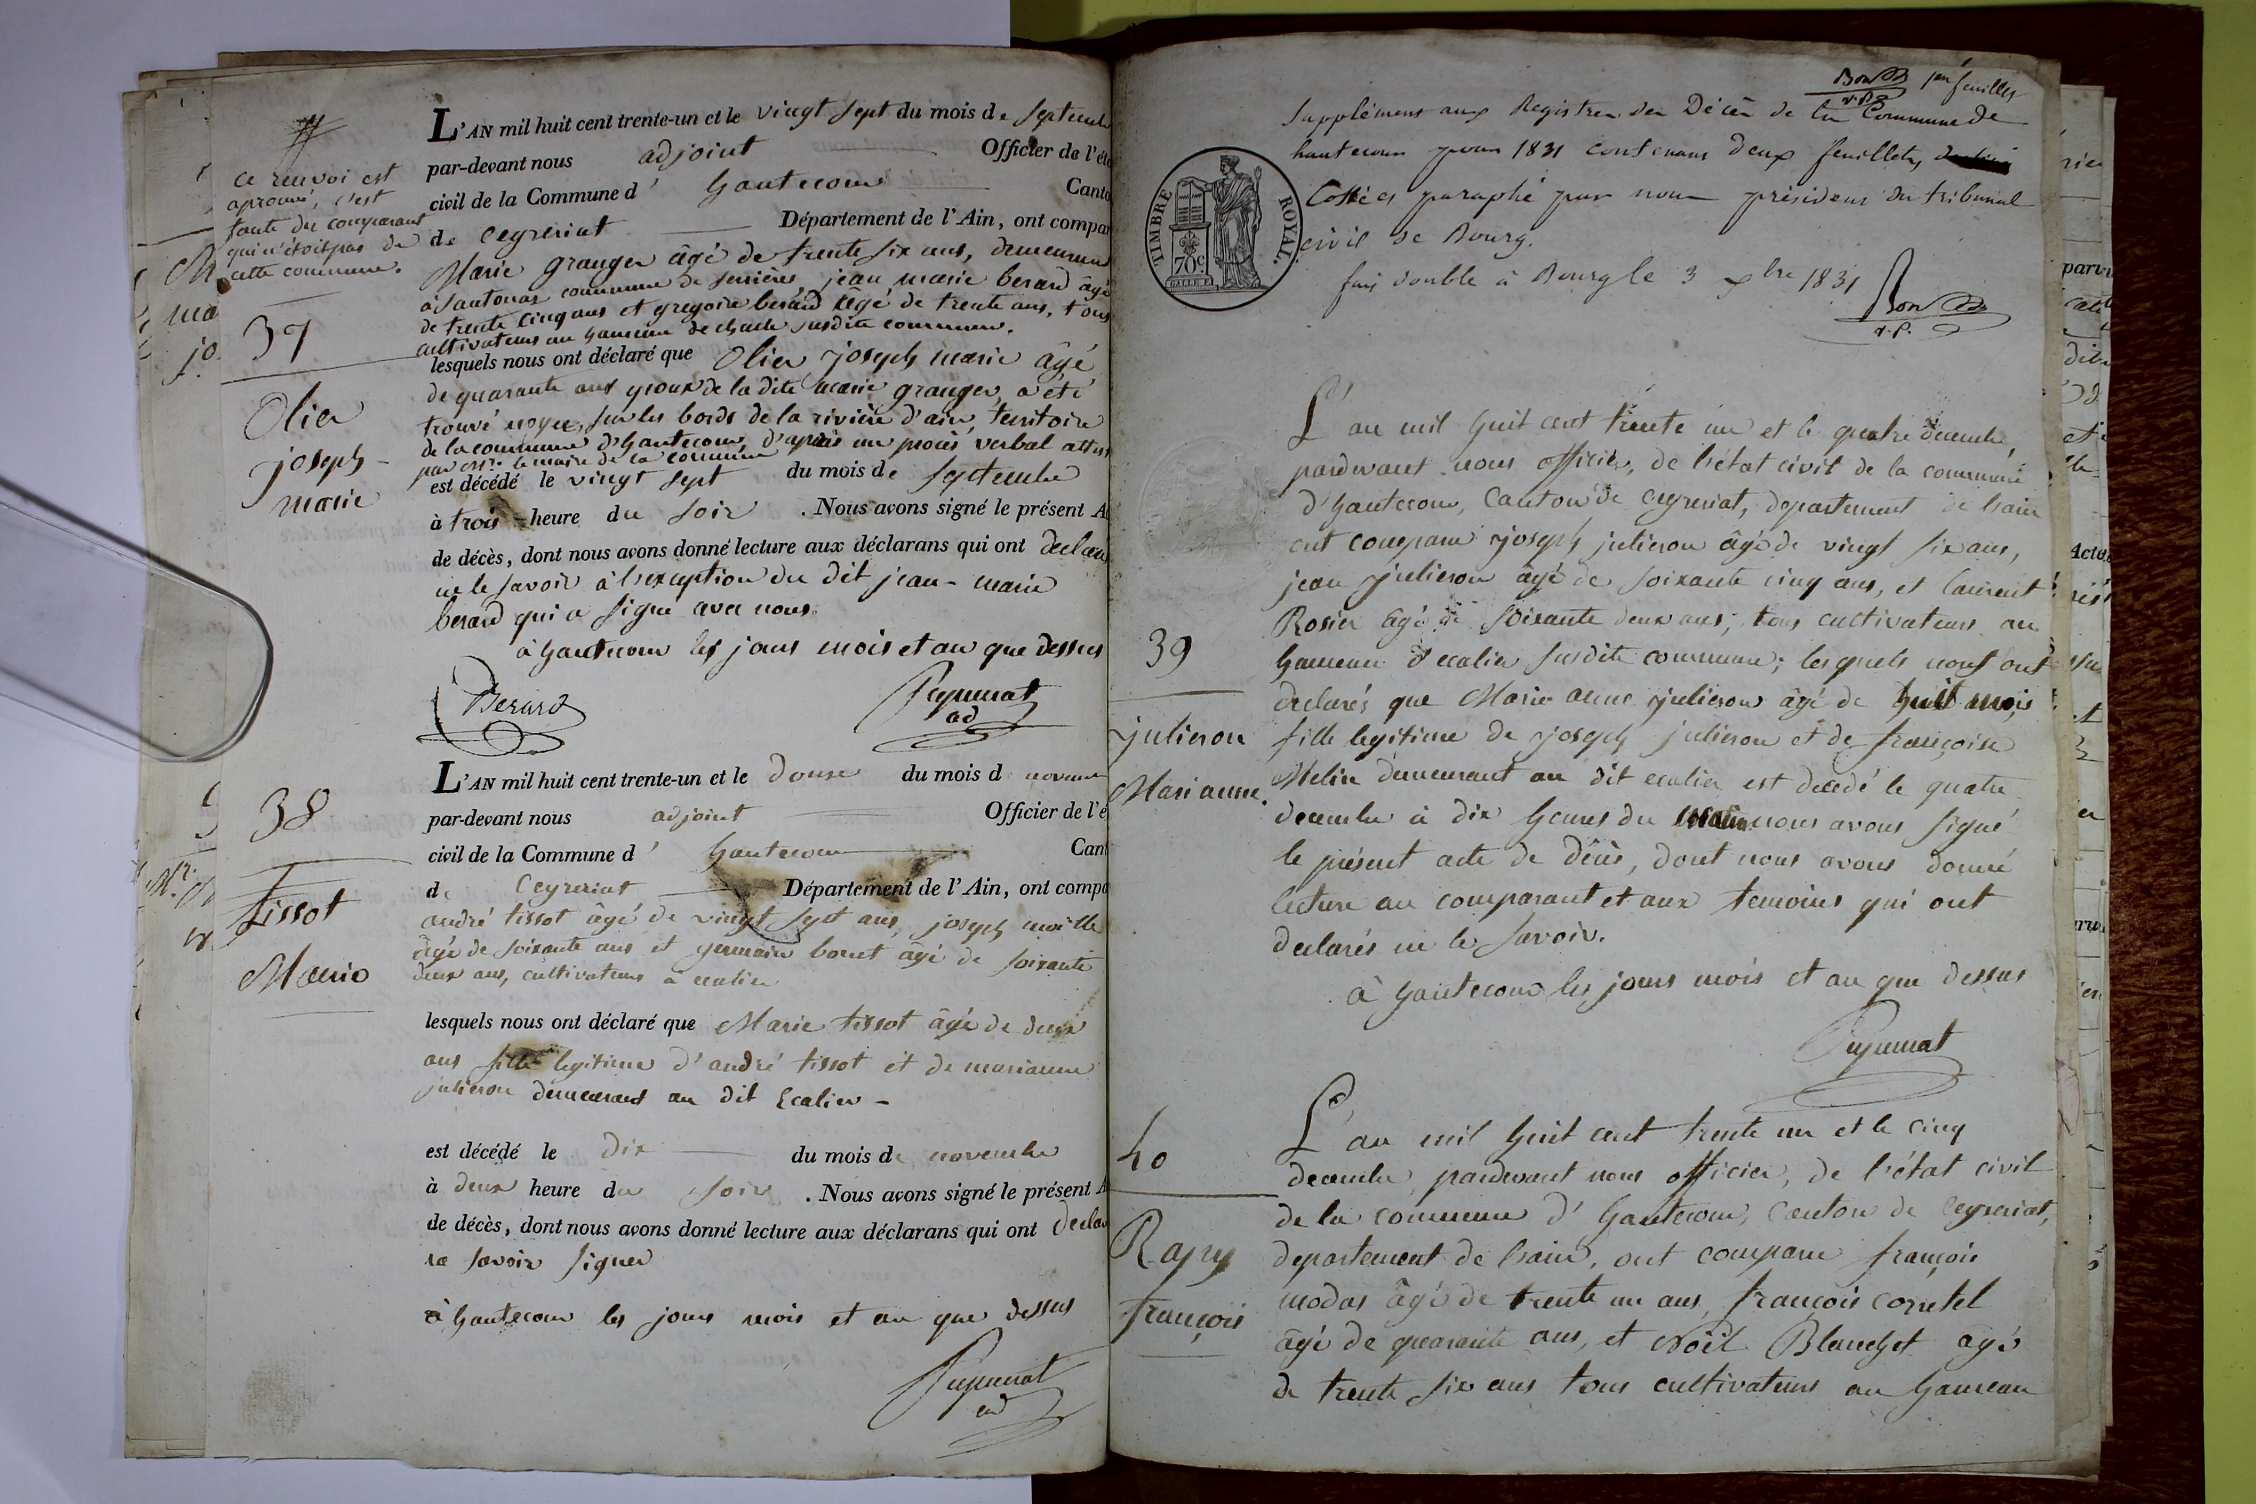 ce renvoi est
aprouvé, c'est
faute du comparant
qui n'étoit pas de
cette commune.
37
Olier
joseph
marie
L'AN mil huit cent trente-un et le vingt sept du mois de septembre
par-devant nous adjoint Officier de l'éta
civil de la Commune d' hautecour Canto
de Ceyzeriat Département de l'Ain, ont compar
Marie granger âgé de trente six ans, demeuran
à santonas commune de serrières, jean marie berard âgé
de trente cinq ans et gregoire berard âgé de trente ans, tous
cultivateurs au hameau de susdite commune.
lesquels nous ont déclaré que Olier joseph marie âgé
de quarante ans de la dite marie granger, a été
trouvé noyé, sur les bords de la rivière d'ain, territoire
de la commune d'hautecour, d'après un procès verbal
par le maire de la commune
est décédé le vingt sept du mois de septembre
à trois heure du soir . Nous avons signé le présent A
de décès, dont nous avons donné lecture aux déclarans qui ont declaré
ne le savoir à l'exception du dit jean-marie
berard qui a signé avec nous.
à hautecour les jours mois et an que dessus
Berard
ad
38
tissot
Marie
L'AN mil huit cent trente-un et le douze du mois d novem
par-devant nous adjoint Officier de l'é
civil de la Commune d' hautecour Cant
de Ceyzeriat Département de l'Ain, ont compa
andré tissot âgé de vingt sept ans, joseph
âgé de soixante ans et germain âgé de soixante
deux ans, cultivateurs à ecalier
lesquels nous ont déclaré que Marie tissot âgé de deux
ans fille legitime d'andré tissot et de marianne
julieron demeurant au dit Ecalier -
est décédé le dix du mois de novembre
à deux heure du soir . Nous avons signé le présent A
de décès, dont nous avons donné lecture aux déclarans qui ont declar
ne savoir signer
à hautecour les jours mois et an que dessus
ad
Bon
v.p.
feuillet
Supplément aux Registres des Décès de la Commune de
hautecour pour 1831 contenant deux feuillets
Cotté et paraphé par nous président du tribunal
civil de Bourg.
fait double à Bourg le 3 xbre 1831
Bon
v.p.
TIMBRE ROYAL.
70c.
39
julieron
Marianne.
L'an mil huit cent trente un et le quatre decembre,
pardevant nous officier, de l'état civil de la commune
d'hautecour, Canton de Ceyzeriat, departement de l'ain
ont comparu joseph julieron âgé de vingt six ans,
jean julieron âgé de soixante cinq ans, et laurent
Rosier âgé de soixante deux ans; tous cultivateurs au
hameau d'ecalier susdite commune; lesquels nous ont
declarés que Marie anne julieron âgé de huit mois
fille legitime de joseph julieron et de françoise
Melin demeurant au dit ecalier est décédé le quatre
decembre à dix heures du matin nous avons signé
le présent acte de décès, dont nous avons donné
lecture au comparant et aux temoins qui ont
declarés ne le savoir.
à hautecour les jours mois et an que dessus
40
françois
L'an mil huit cent trente un et le cinq
decembre, pardevant nous officier, de l'état civil
de la commune d'hautecour, Canton de Ceyzeriat,
departement de l'ain, ont comparu françois
modas âgé de trente un ans, françois corretel
âgé de quarante ans, et Noël Blanchet âgé
de trente six ans tous cultivateurs au hameau